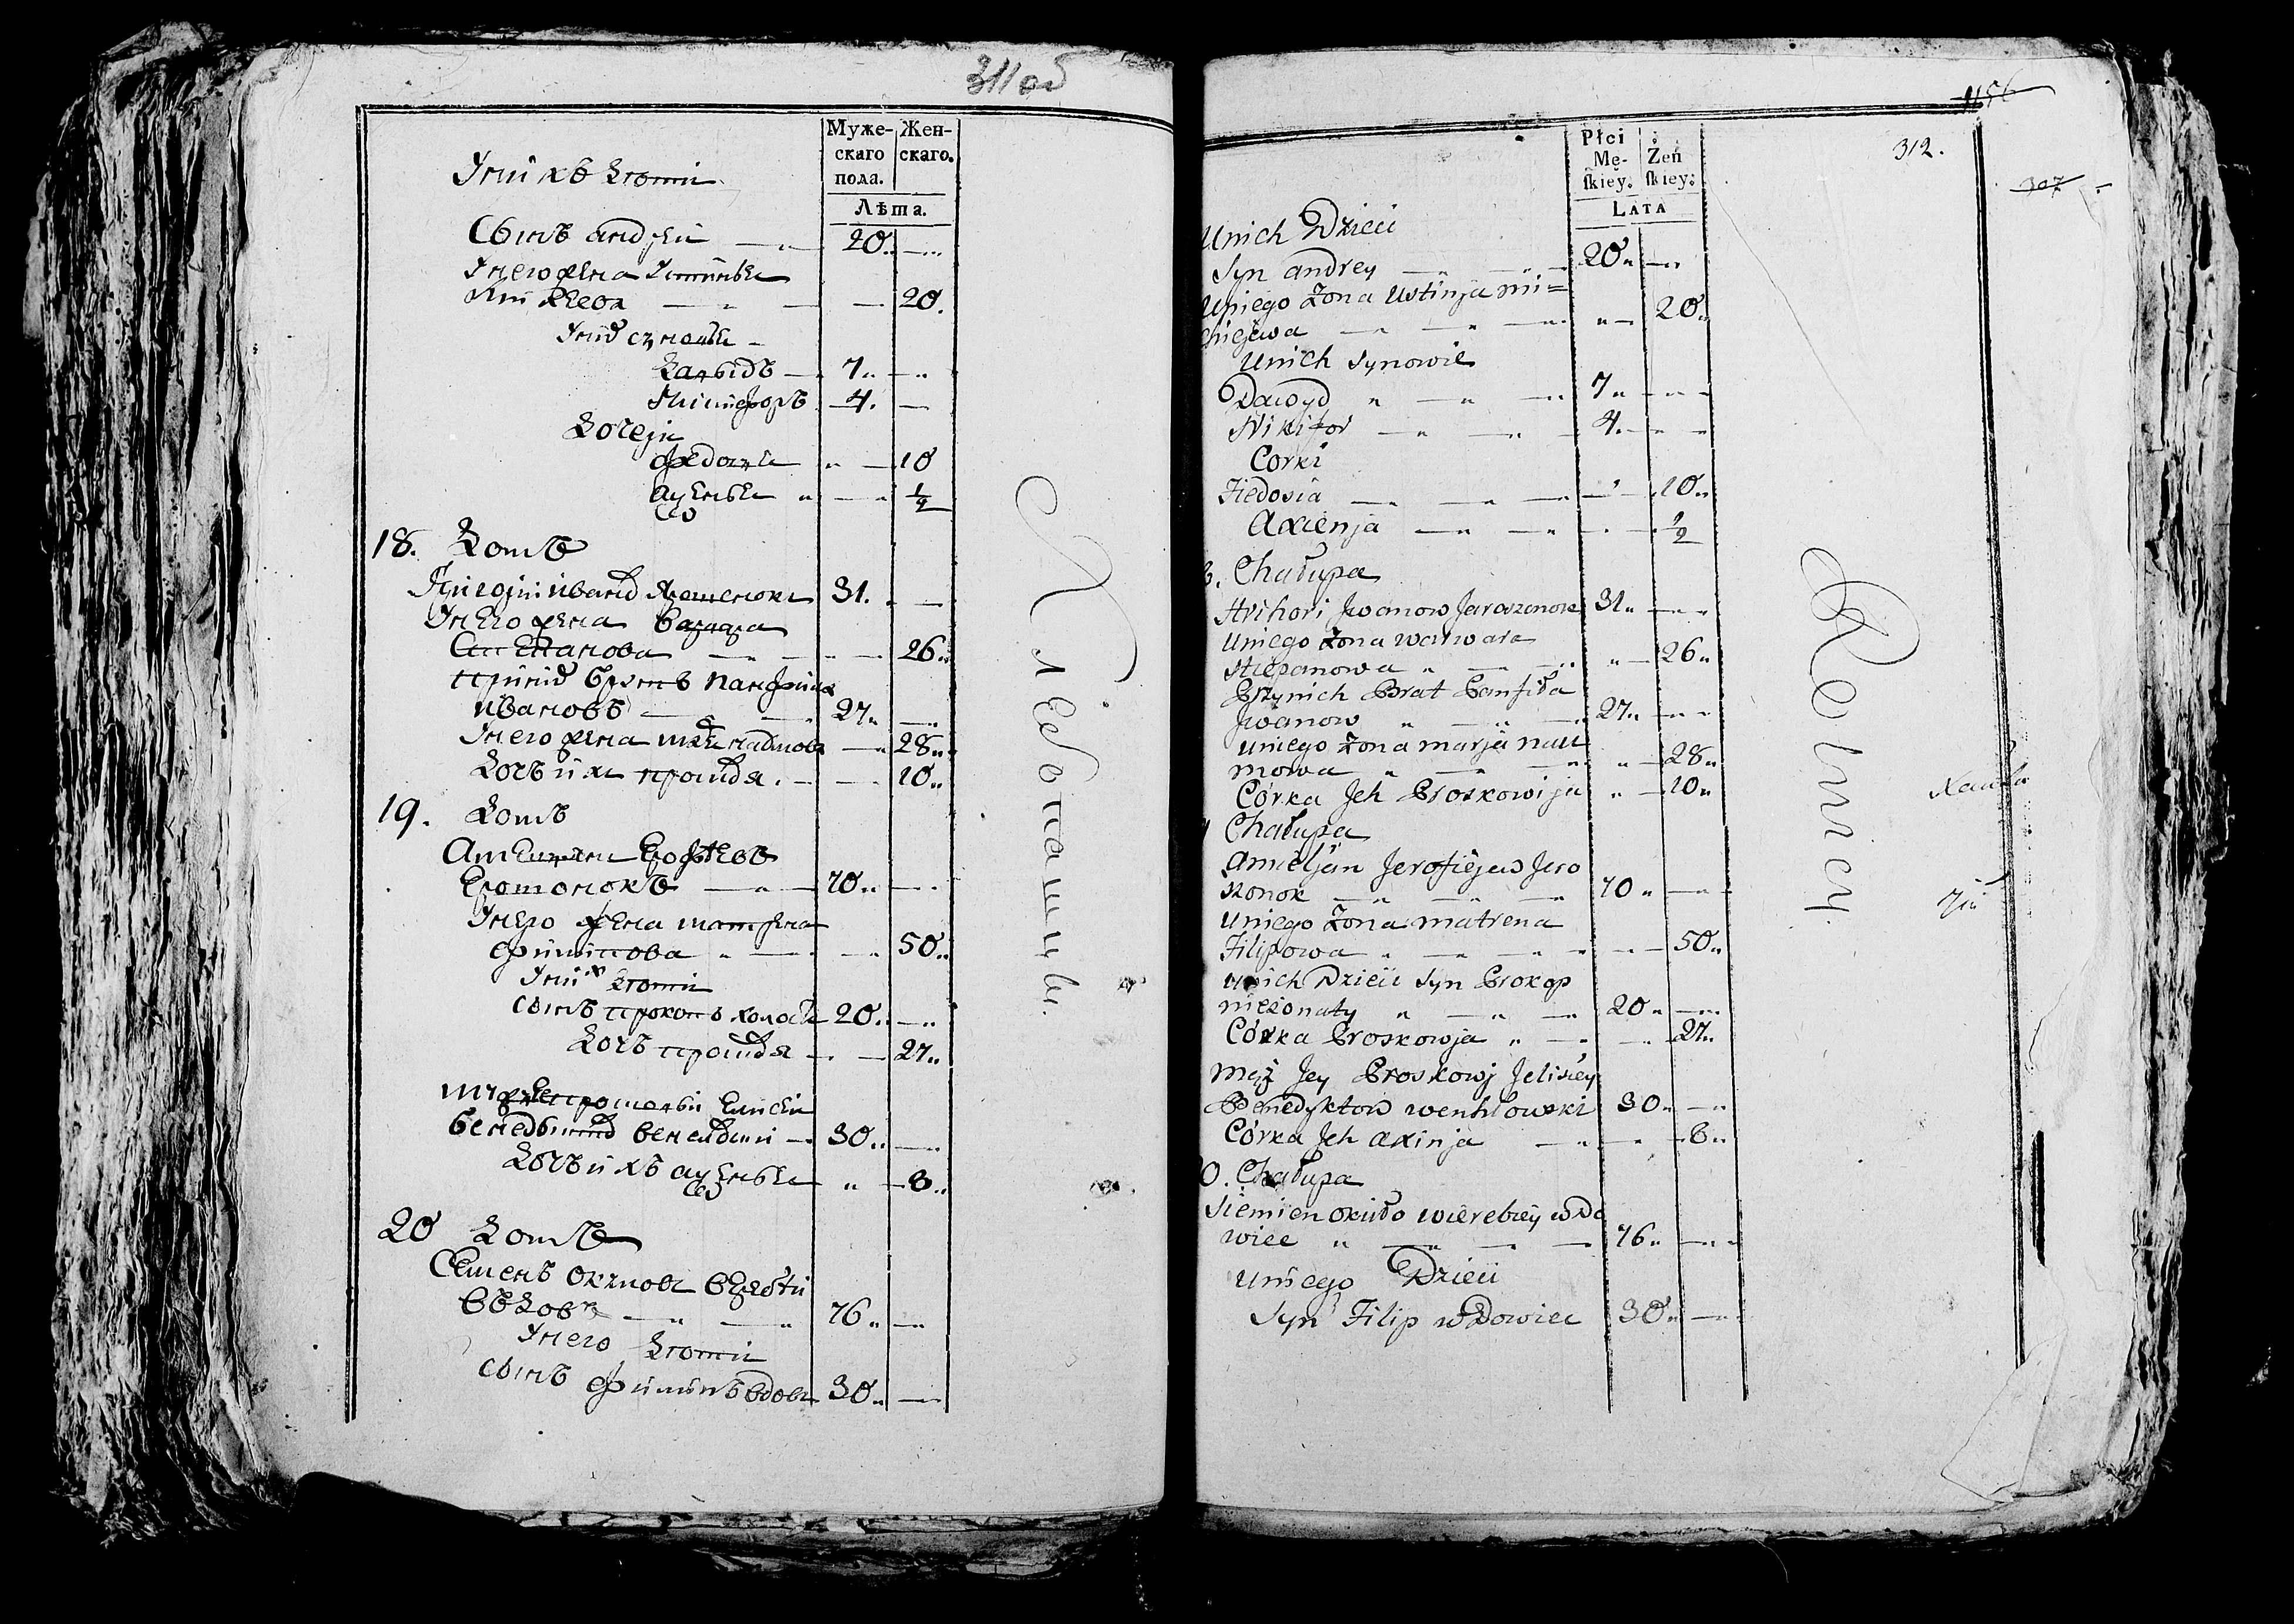 311 об
Муже-
скаго
пола.
Жен-
скаго.
Лѣта.
У нихъ дѣти
Сынъ андрей 20.
У него жена Устинья
Михѣева 20.
У нихъ сыновья
Давыдъ 7
Никифоръ 4.
Дочери
Федосья 10
Аксенья 1/2
18. Домъ
Григори иванов Ярошенокъ 31.
У него жена варвара
Степанова 26
при нихъ братъ панфила
ивановъ 27
У него жена марья наумова 28
Дочь ихъ просковья 10
19. Домъ
Амельянъ Ерофѣевъ
Ерошонокъ 70
У него жена матрена
филипова 50
У них дѣти
сынъ прокопъ холостъ 20
Дочь просковья 27
мужъ просковьи Елисей
бенедыктов 30
Дочь ихъ аксенья 8
20 Домъ
Семенъ Окуловъ веребей
вдовец 76
У него дѣти
сынъ филипъ вдовец 30
Хлебопашцы.
1156
312.
307
Płci
Mę-
ſkiey:
Żeń
ſkiey:
LATA
Unich Dzieci
Syn andrey 20
Uniego Żona Ustinja mi=
chiejewa 20
Unich Synowie
Dawyd 7
Nikifor 4
Corki
Fiedosia 10
Axienja 1/2
Chałupa
Hrihori Jwanow Jaroszonok 31
Uniego Żona warwara
Stiepanowa 26
Przynich Brat Panfiła
Jwanow 27
Uniego Żona marja nau
mowa 28
Córka Jch Proskowija 10
Chałupa
Amieljan Jerofiejew Jero
szonok 70
Uniego Żona matrena
Filipowa 50
Unich Dzieci Syn Prokop
nieżonaty 20
Córka Proskowja 27
Mąż Jey Proskowj Jelisiey
Benedyktow wenhłowski 30
Córka Jch Axinja 8
0. Chałupa
Siemien Okuło wierebiey wdo
wiec 76
Uniego Dzieci
Syn Filip wdowiec 30
Rolnicy.